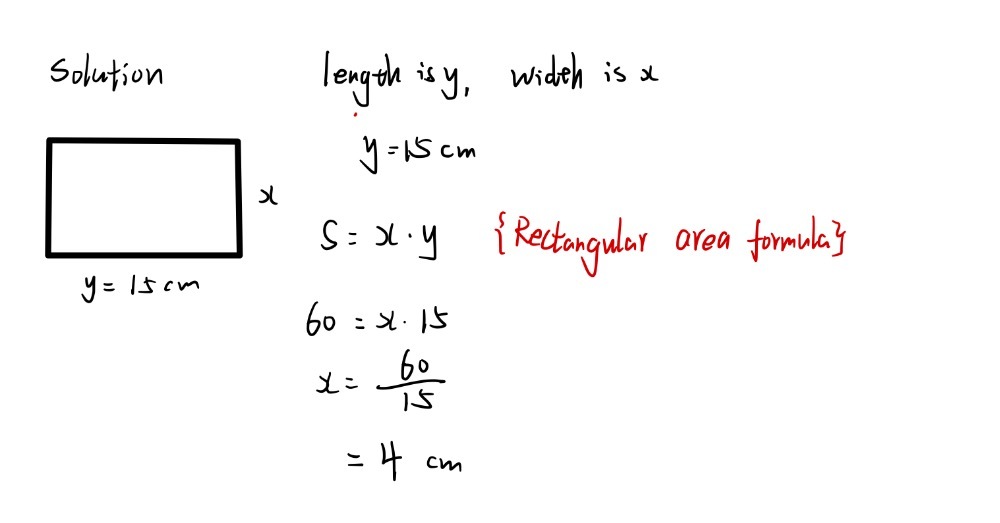 Solution
length is y, width is x
y = 15 cm
x
S = x · y {Rectangular area formula}
y = 15 cm
60 = x · 15
x = 60/15
= 4 cm